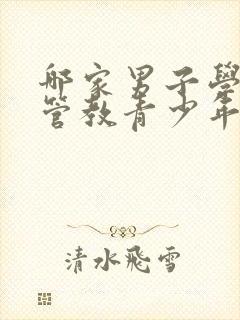 邪家男子學
管教青少年
清水飛雪